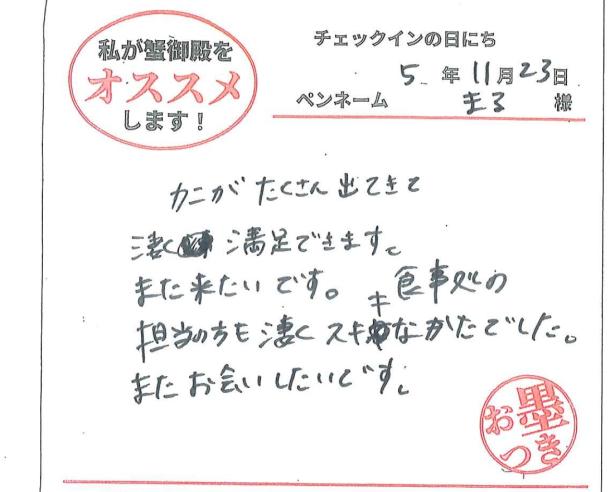 私が蟹御殿を
オススメ
します！
チェックインの日にち
5年11月23日
ペンネーム まる 様
カニがたくさん出てきて
凄く満足できます。
また来たいです。食事処の
担当の方も凄くスキなかたでした。
またお会いしたいです。
お墨つき